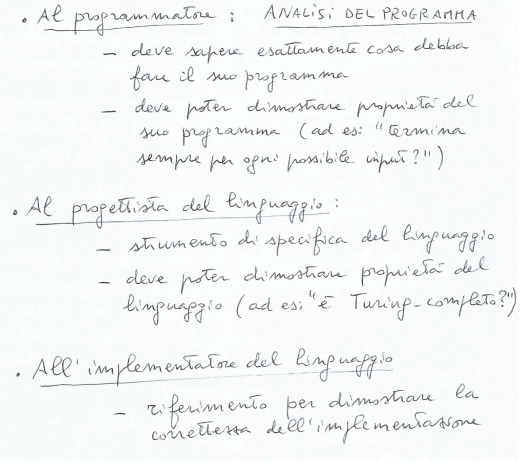 • Al programmatore : ANALISI DEL PROGRAMMA
– deve sapere esattamente cosa debba
fare il suo programma
– deve poter dimostrare proprietà del
suo programma (ad es: "termina
sempre per ogni possibile input?")
• Al progettista del linguaggio :
– strumento di specifica del linguaggio
– deve poter dimostrare proprietà del
linguaggio (ad es: "è Turing-completo?")
• All'implementatore del linguaggio
– riferimento per dimostrare la
correttezza dell'implementazione